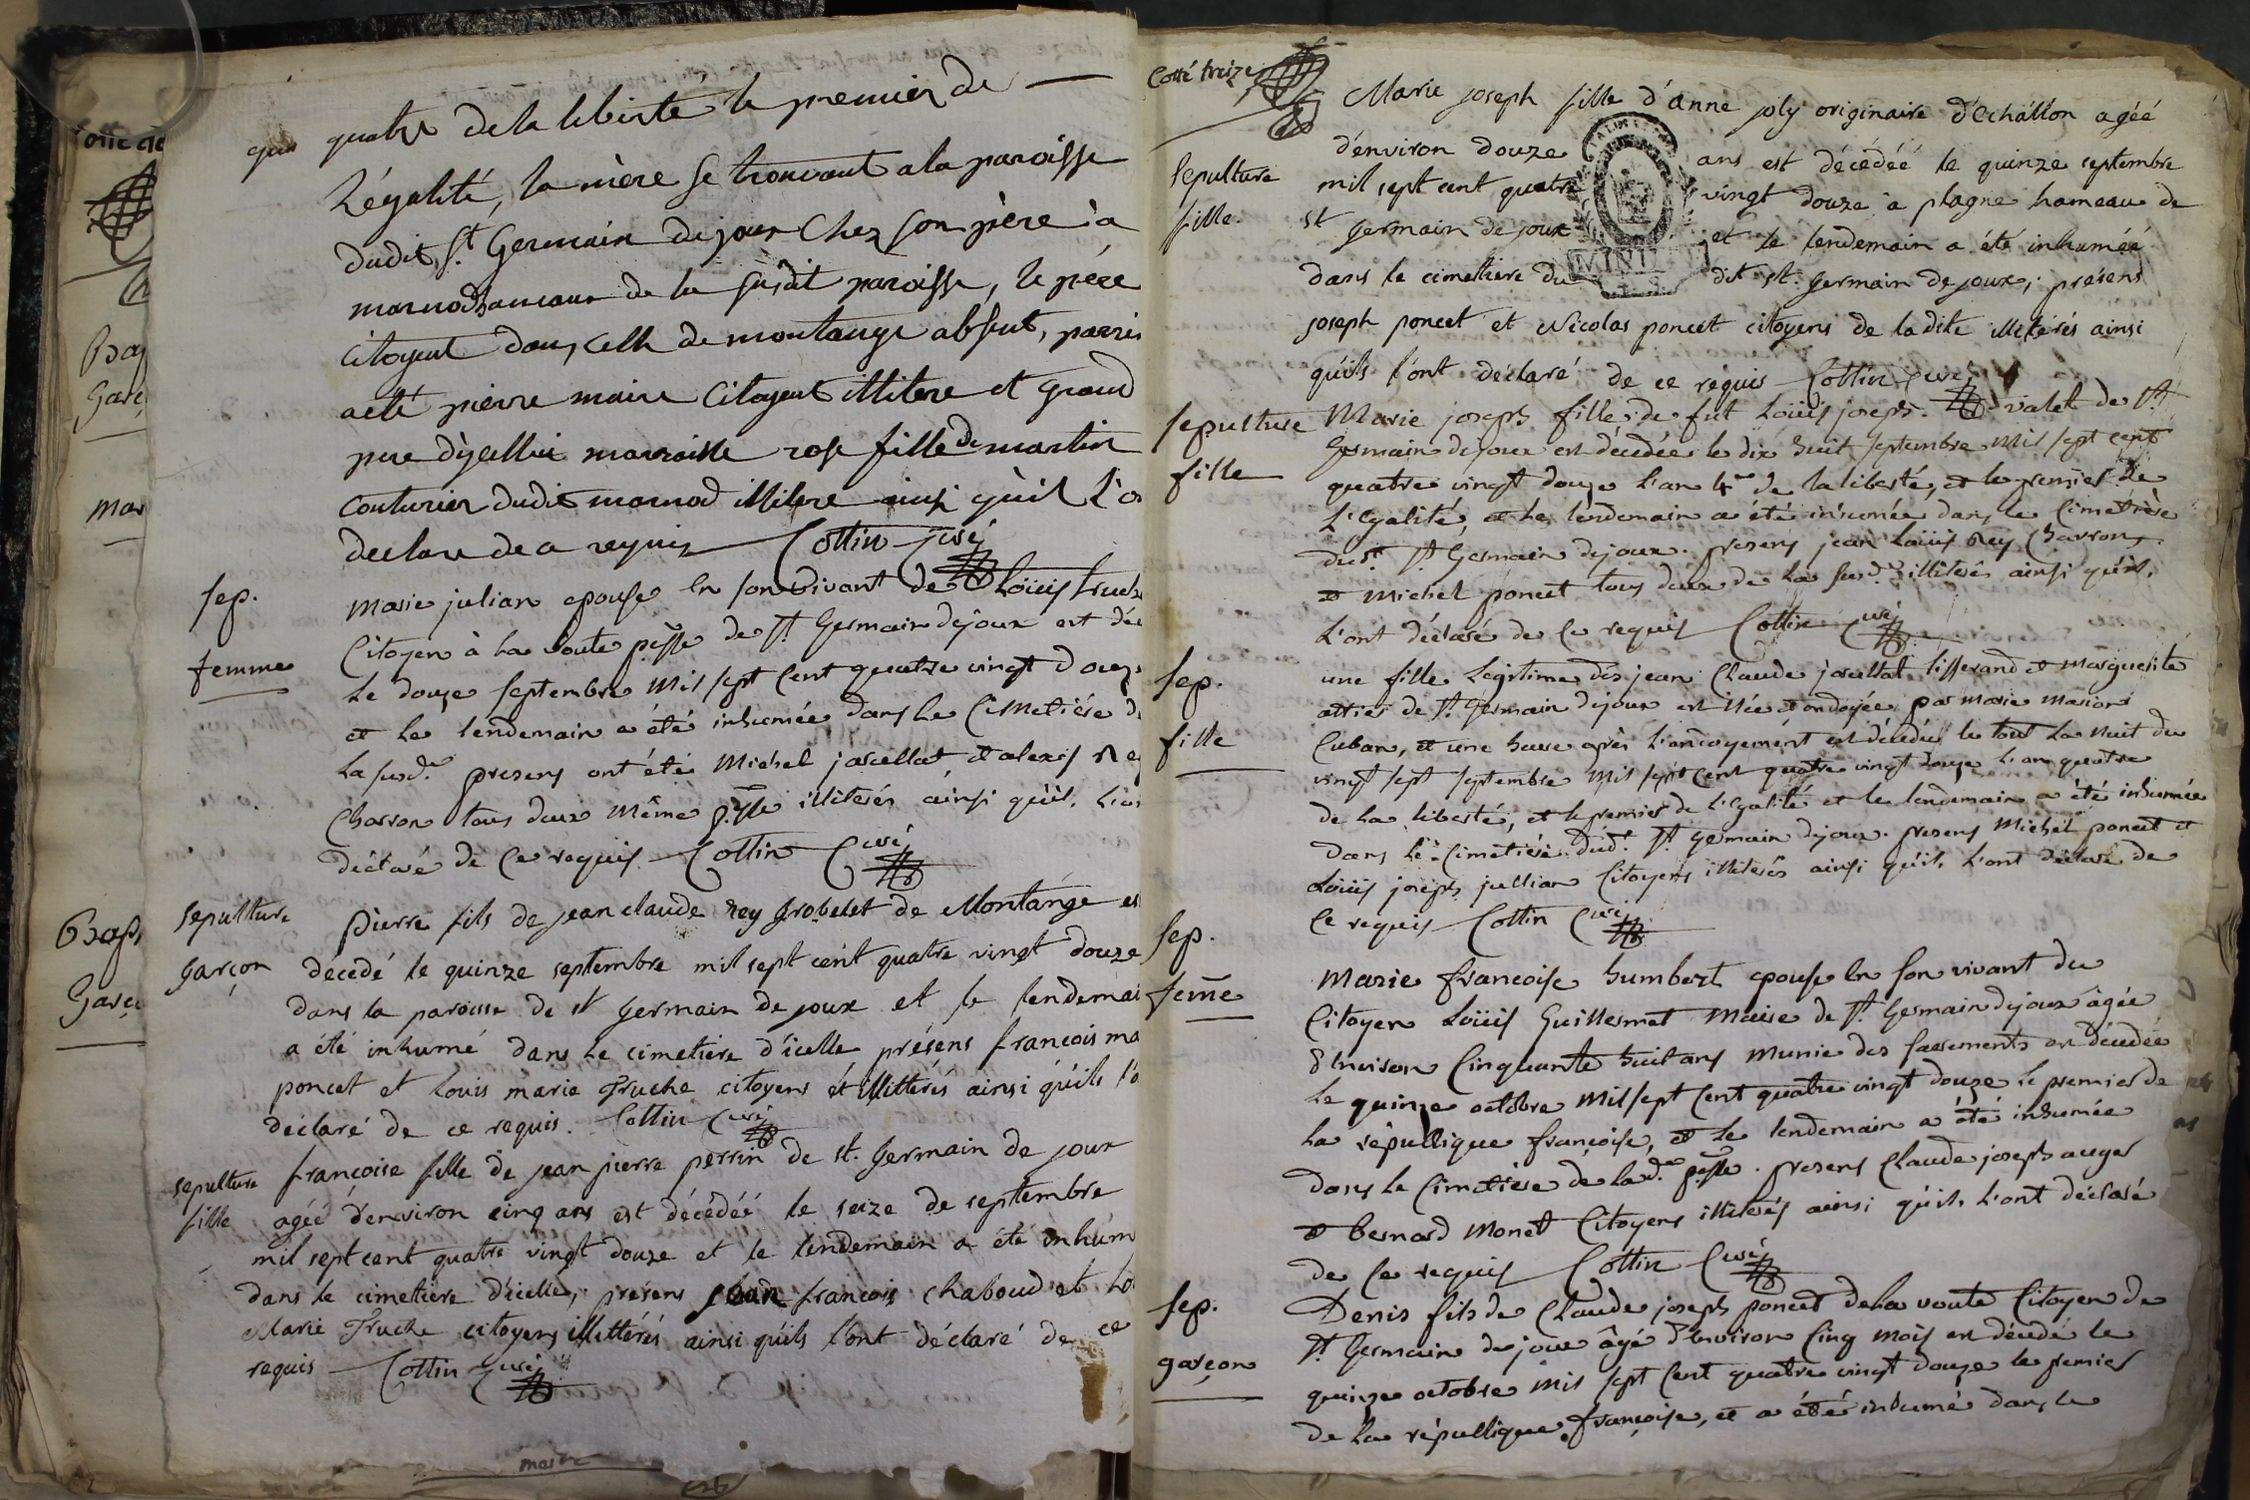 quatre de la liberté le premier de
L'égalité, la mère se trouvant a la paroisse
dudit St Germain de joux chez son père à
marnod hameau de la susdit paroisse, le père
citoyent dans celle de montange absent, parrin
a été pierre maire Citoyent illitere et grand
pere d'ycelluy marraine rose fille de martin
couturier dudit marnod illitere ainsi qu'il l'on
declare de ce requis Cottin Curé
sep.
femme
marie julian epouse en son vivant de Loüis truche
Citoyen à la voute psse de St Germain dejoux est déc
le douze septembre mil sept cent quatre vingt douze
et le lendemain a été inhumée dans le Cimetière de
la susd. presens ont été Michel jasellat et alexis Rey
Charron tous deux même psse illiterés ainsi qu'ils l'on
déclaré de ce requis Cottin Curé
sepulture
garçon
pierre fils de jean claude rey grobelet de Montange es
décedé le quinze septembre mil sept cent quatre vingt douze
dans la paroisse de st germain de joux et le lendemai
a été inhumé dans le cimetiere d'icelle présens françois ma
poncet et louis marie Truche citoyens et illittérés ainsi qu'ils l'o
déclaré de ce requis. Cottin Curé
sepulture
fille
françoise fille de jean pierre perrin de st. germain de joux
agéé d'environ cinq ans est décédéé le seize de septembre
mil sept cent quatre vingt douze et le lendemain a été inhum
dans le cimetiere d'icelle, présens jean françois chaboud et Lo
Marie Truche citoyens illittérés ainsi qu'ils l'ont déclaré de ce
requis Cottin Curé
Bap
Garç
mar
Bap
Garç
Cotté treize
sepulture
fille.
Marie joseph fille d'anne joly originaire d'Echallon agéé
d'environ douze ans est décédéé le quinze septembre
mil sept cent quatre vingt douze à plagne hameau de
st germain de joux et le lendemain a été inhuméé
dans le cimetiere du dit st. germain de joux; présens
joseph poncet et Nicolas poncet citoyens de la dite illitérés ainsi
qu'ils l'ont déclaré de ce requis Cottin Curé
sepulture
fille
Marie joseph fille de fut Loüis joseph valet de St
Germain dejoux est décédée le dix huit septembre mil sept cent
quatre vingt douze l'an 4me de la liberté, et le premier de
L'egalité, et le lendemain a été inhumée dans le Cimetière
dud. St Germain dejoux. presens jean Loüis Rey Charron
et Michel poncet tous deux de la susd. illiterés ainsi qu'ils
l'ont déclaré de ce requis Cottin Curé
sep.
fille
une fille Légitime des jean Claude jasellat tisserand et marguerite
de St Germain dejoux est née et ondoyée par marie marion
Cuban, et une heure après l'ondoyement est décédée le tout la nuit du
vingt sept septembre mil sept cent quatre vingt douze l'an quatre
de la liberté, et le premier de l'egalité et le lendemain a été inhumée
dans le Cimetière dud. St germain dejoux. presens Michel poncet et
Loüis joseph jullian Citoyens illiterés ainsi qu'ils l'ont déclaré de
ce requis Cottin Curé
sep.
feme
Marie françoise humbert epouse en son vivant du
Citoyen Loüis Guillermet Maire de St Germain dejoux âgée
d'environ Cinquante huit ans munie des sacrements est décédée
le quinze octobre mil sept cent quatre vingt douze le premier de
la république françoise, et le lendemain a été inhumée
dans le Cimetière de lad. psse. presens Claude joseph auger
et bernard monet Citoyens illiterés ainsi qu'ils l'ont déclaré
de ce requis Cottin Curé
sep.
garçon
Denis fils de Claude joseph poncet de la voute Citoyen de
St Germain de joux âgé d'environ Cinq mois est décédé le
quinze octobre mil sept cent quatre vingt douze le premier
de la république françoise, et a été inhumé dans le